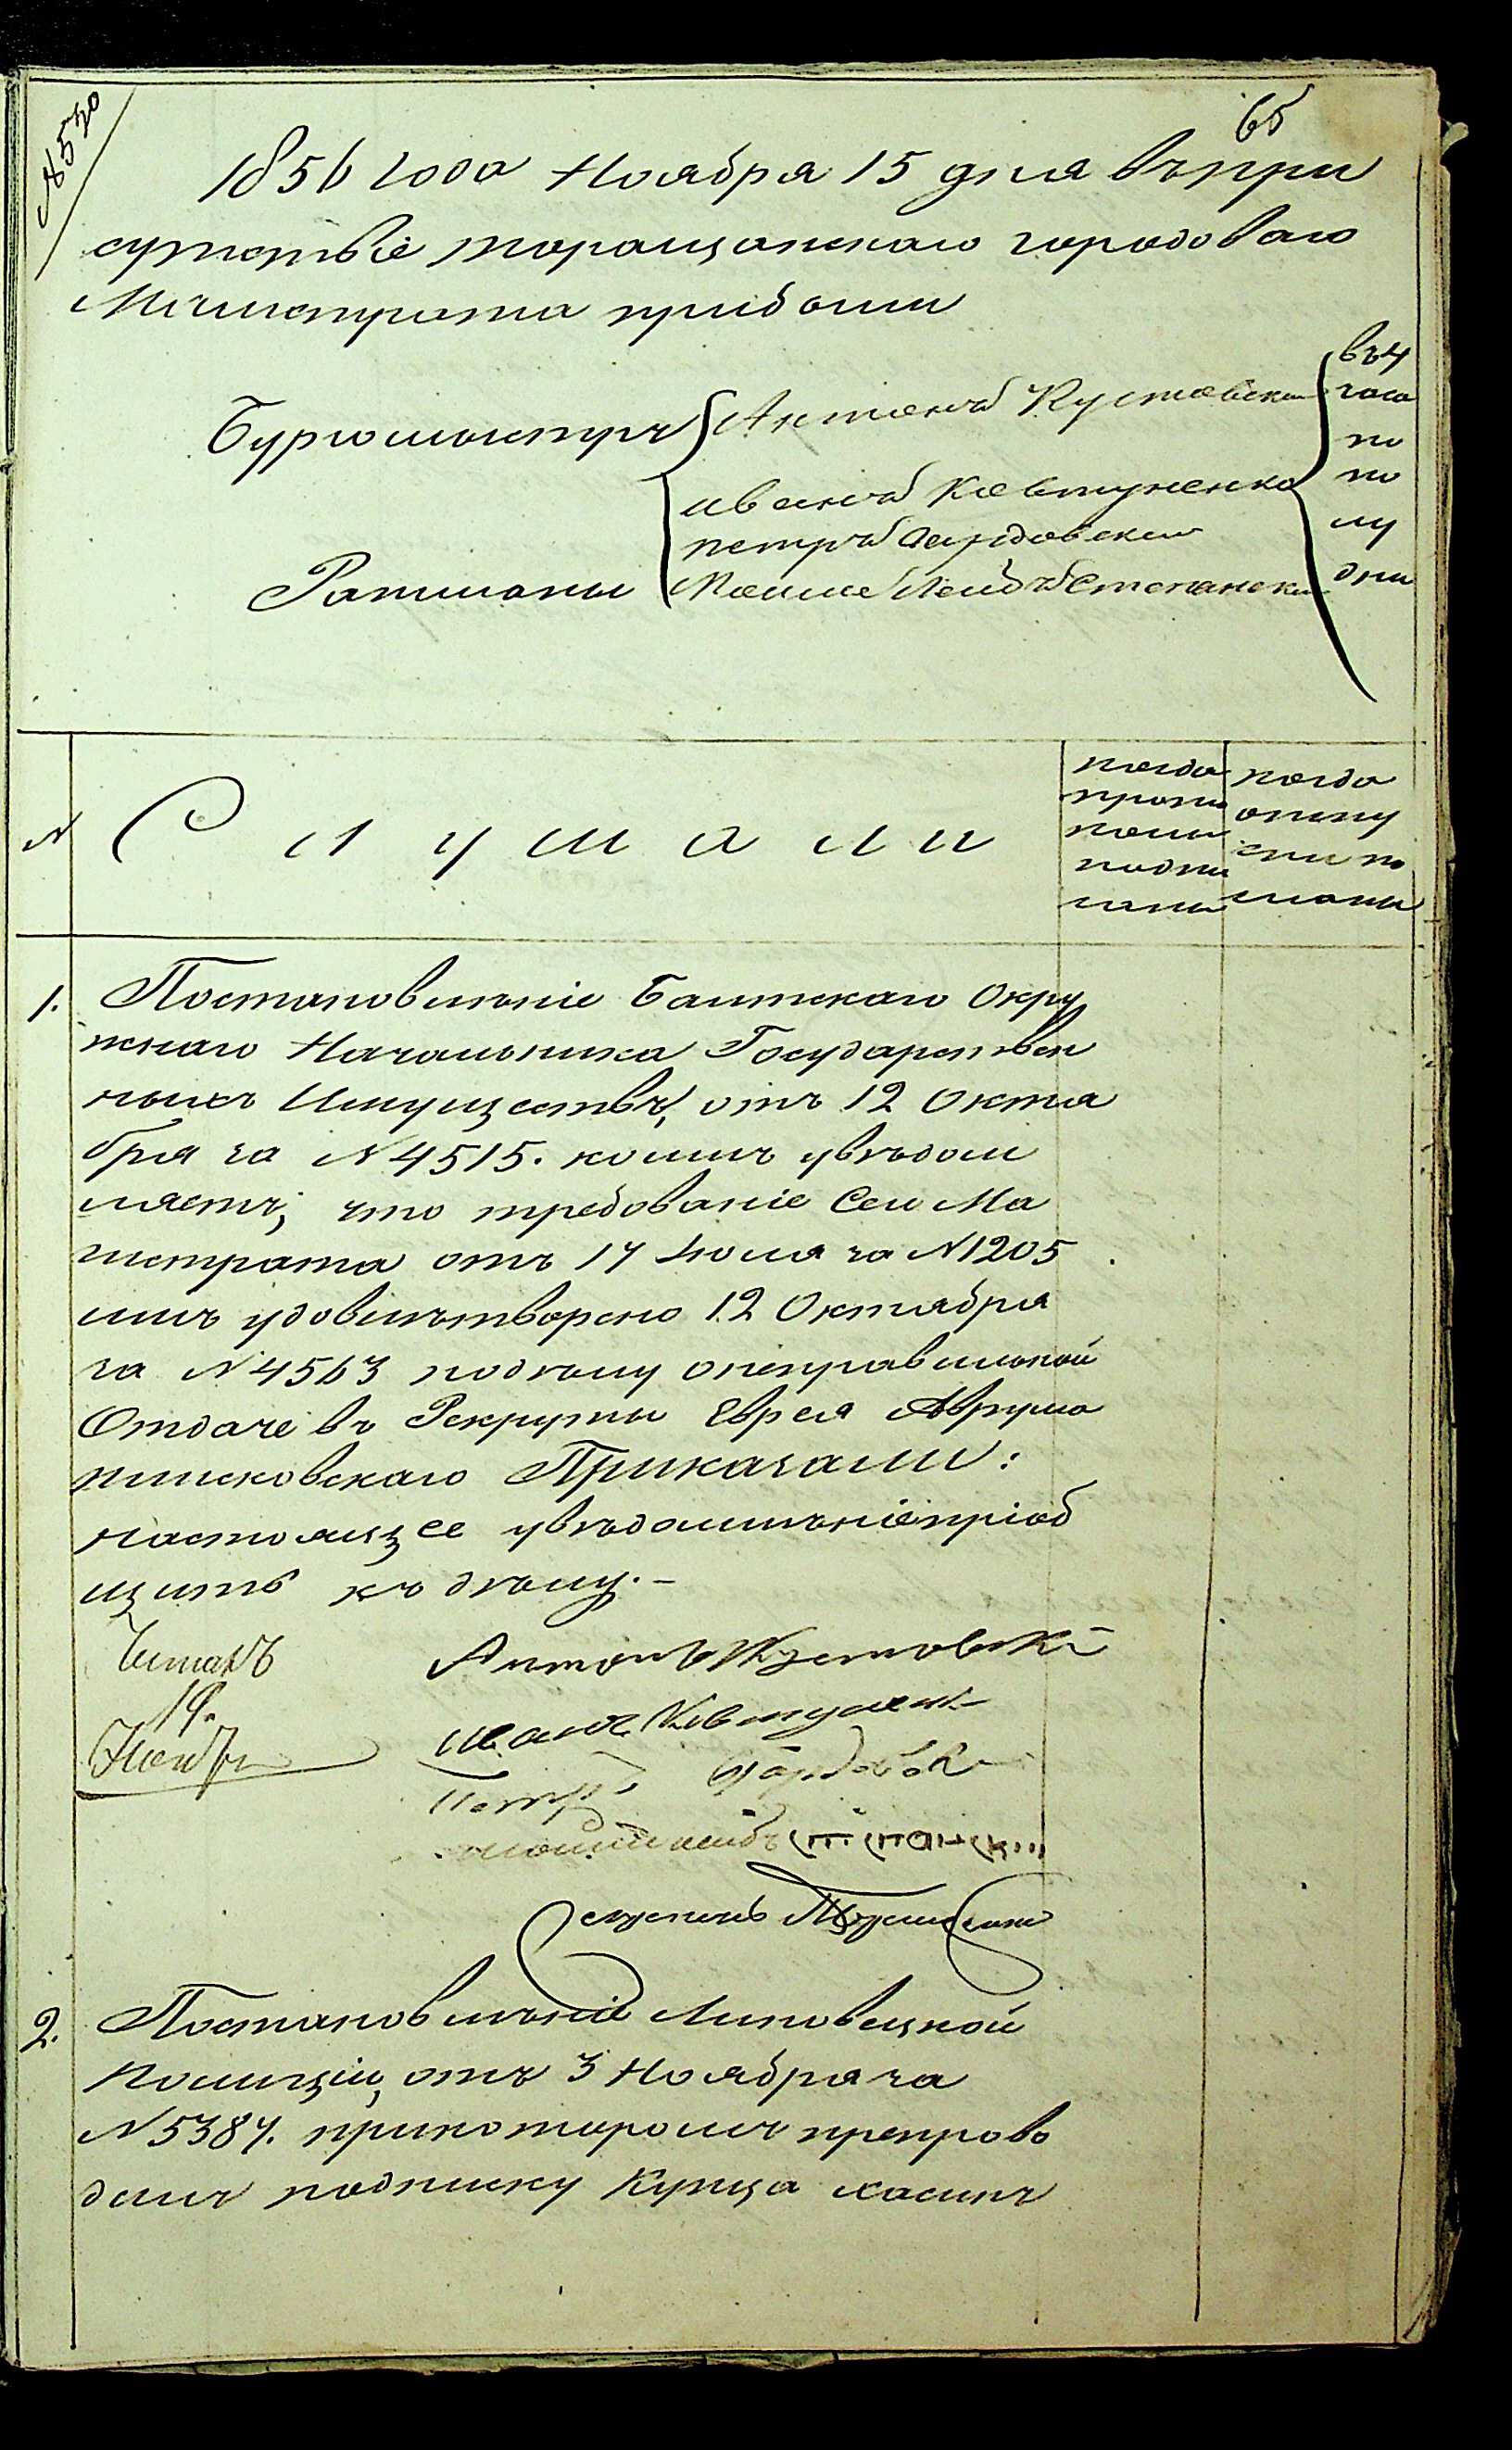 № 530
65
1856 года Ноября 15 дня въ при
сутствіе таращанскаго городоваго
Магистрата прибыли
Бургомистръ Антонъ Кустовски
Иванъ Ковтуненко
петръ
Ратманы Мошко Лейбъ Степански
въ 4
часа
по
по
лу
дни
№
Слушали
когда
прото
колы
подпи
саны
когда
отпу
сти по
сланы
1. Постановленіе Балтскаго Окру
жнаго Начальника Государствен
ныхъ Имуществъ, отъ 12 Октя
бря за № 4515. коимъ увѣдом
ляетъ, что требованіе Сего Ма
гистрата отъ 17 Іюля за № 1205
имъ удовлѣтворено 12 Октября
за № 4563 по дѣлу о неправильной
Отдаче въ Рекруты Еврея Аврума
Приказали:
настоящее увѣдомлѣніе пріоб
щить къ дѣлу.-
Читалъ
19.
Ноября
Антонъ Кустовскі
Иванъ Ковтуненк
Петръ
Степански
2. Постановленіе Липовецкой
Полиціи, отъ 3 Ноября за
№ 5387. при которомъ препрово
дила подписку Купца